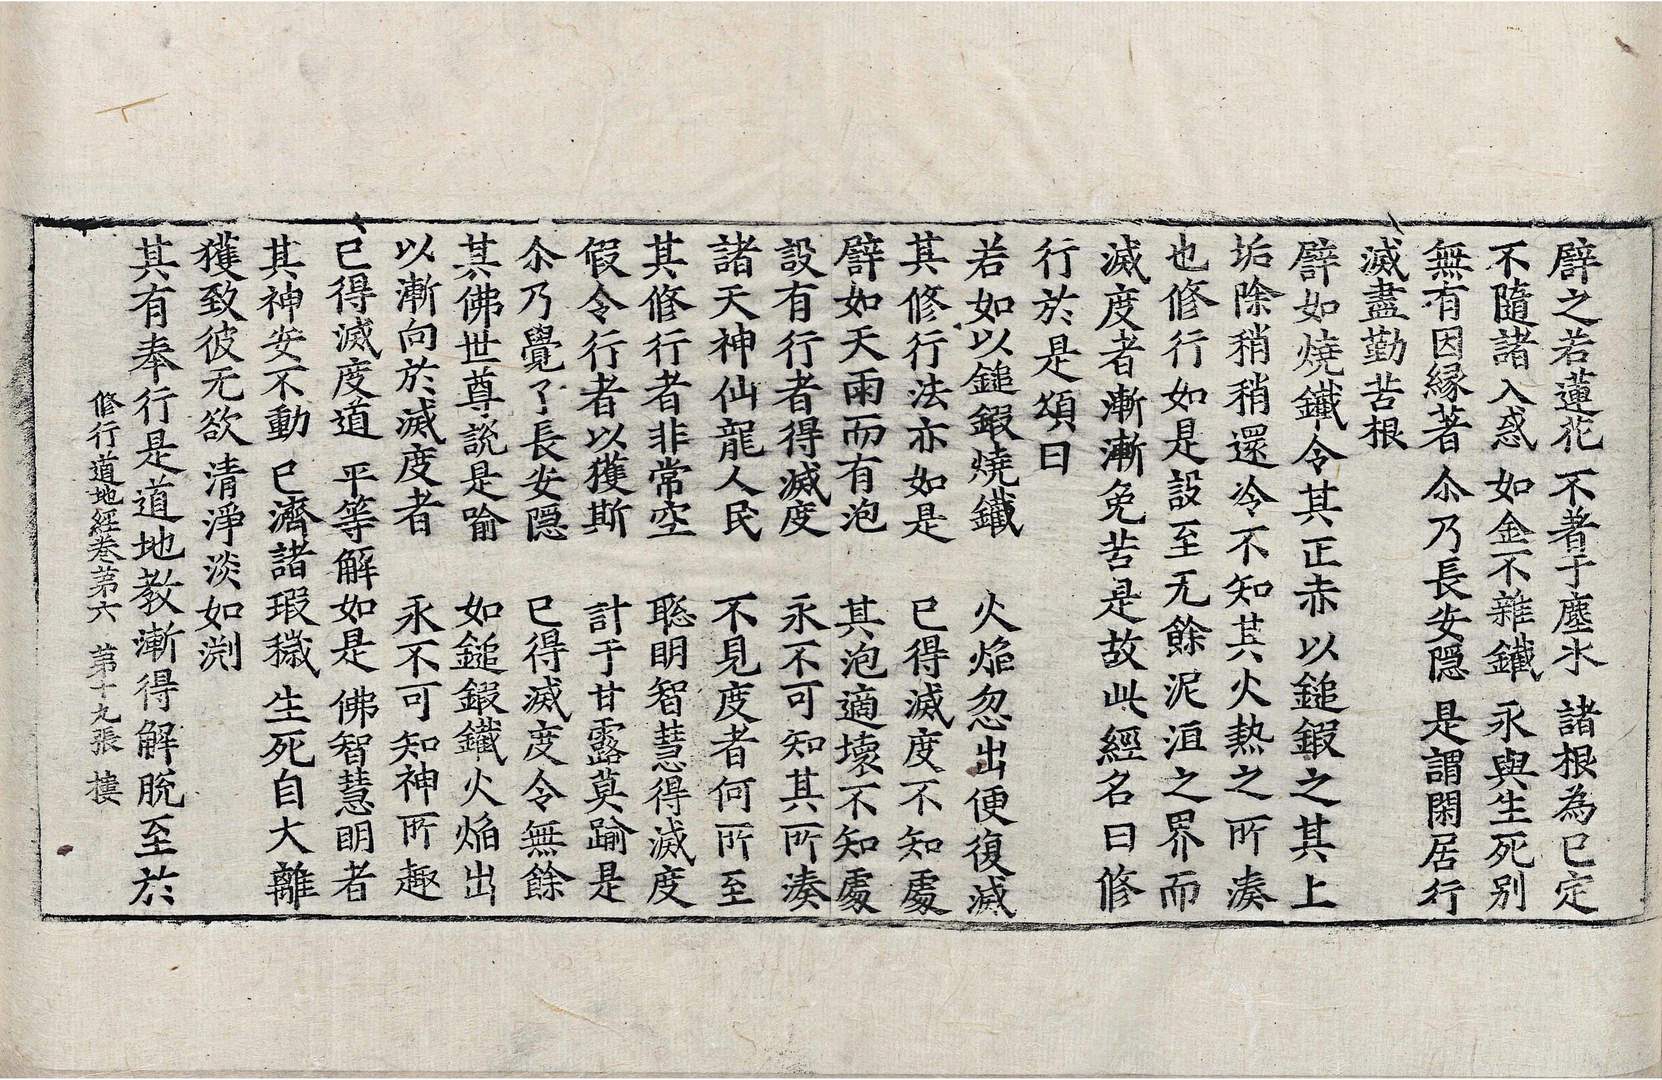 譬之若蓮花 不著于塵水 諸根為已定
不隨諸入惑 如金不雜鐵 永與生死別
無有因緣著 尒乃長安隱 是謂閑居行
滅盡勤苦根
譬如燒鐵令其正赤以鎚鍜之其上
垢除稍稍還冷不知其火熱之所湊
也修行如是設至无餘泥洹之界而
滅度者漸漸免苦是故此經名曰修
行於是頌曰
若如以鎚鍜燒鐵 火焰忽出便復滅
其修行法亦如是 已得滅度不知處
譬如天雨而有泡 其泡適壞不知處
設有行者得滅度 永不可知其所湊
諸天神仙龍人民 不見度者何所至
其修行者非常空 聦明智慧得滅度
假令行者以獲斯 計于甘露莫踰是
尒乃覺了長安隱 已得滅度令無餘
其佛世尊說是喻 如鎚鍜鐵火焰出
以漸向於滅度者 永不可知神所趣
已得滅度道 平等解如是 佛智慧明者
其神安不動 已濟諸瑕穢 生死自大離
獲致彼无欲 清淨淡如渕
其有奉行是道地教漸得解脫至於
修行道地經卷第六 第十九張 樓